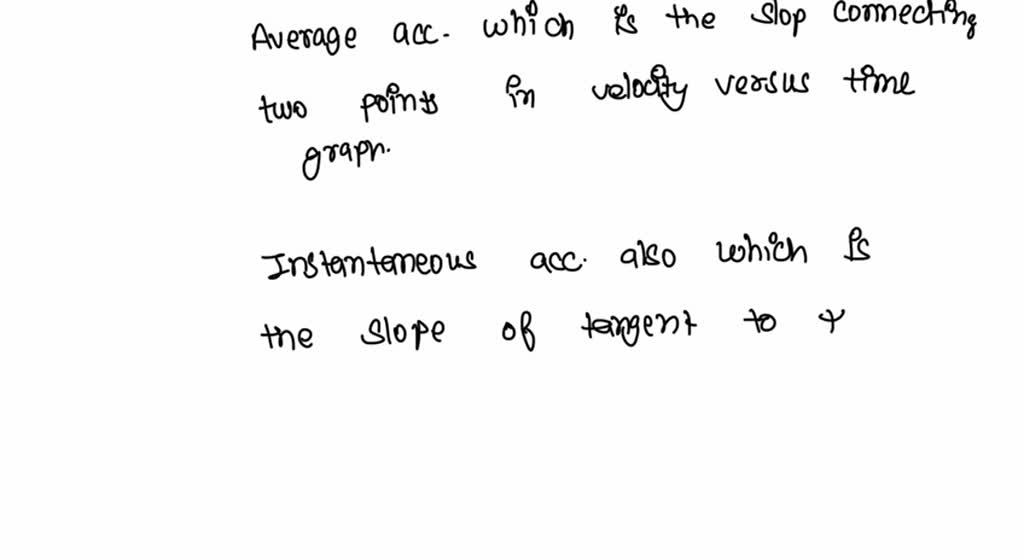 Average acc. which is the slop connecting
two points in velocity versus time
graph.
Instantaneous acc. also which is
the slope of tangent to